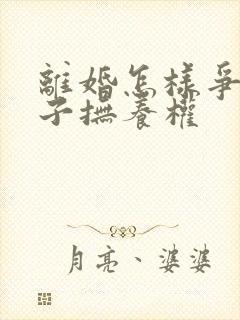 離婚怎樣爭
子撫養權
月亮、婆婆